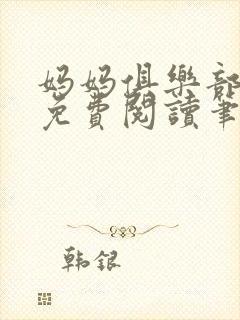 妈妈俱樂部
免費閱讀筆
韩银